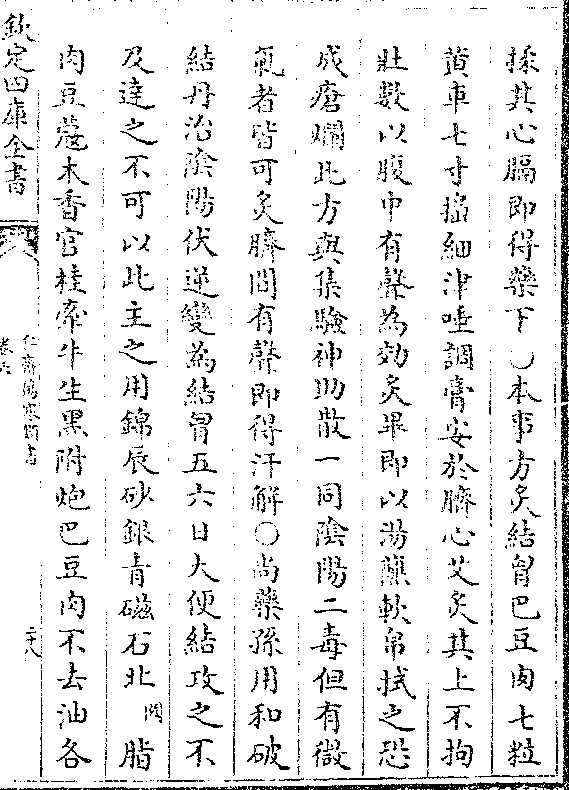 揉其心膈即得藥下○本事方灸結胷巴豆肉七粒
黄連七寸擣細津唾調膏安於臍心艾灸其上不拘
壯數以腹中有聲為効灸畢即以湯蘸軟帛拭之恐
成瘡爛此方與集驗神助散一同隂陽二毒但有微
氣者皆可灸臍間有聲即得汗解○尚藥孫用和破
結丹治隂陽伏逆變為結胷五六日大便結攻之不
及達之不可以此主之用錦辰砂銀青磁石北闕脂
肉豆蔻木香官桂牽牛生黒附炮巴豆肉不去油各
欽定四庫全書
仁齋傷寒類書
卷六